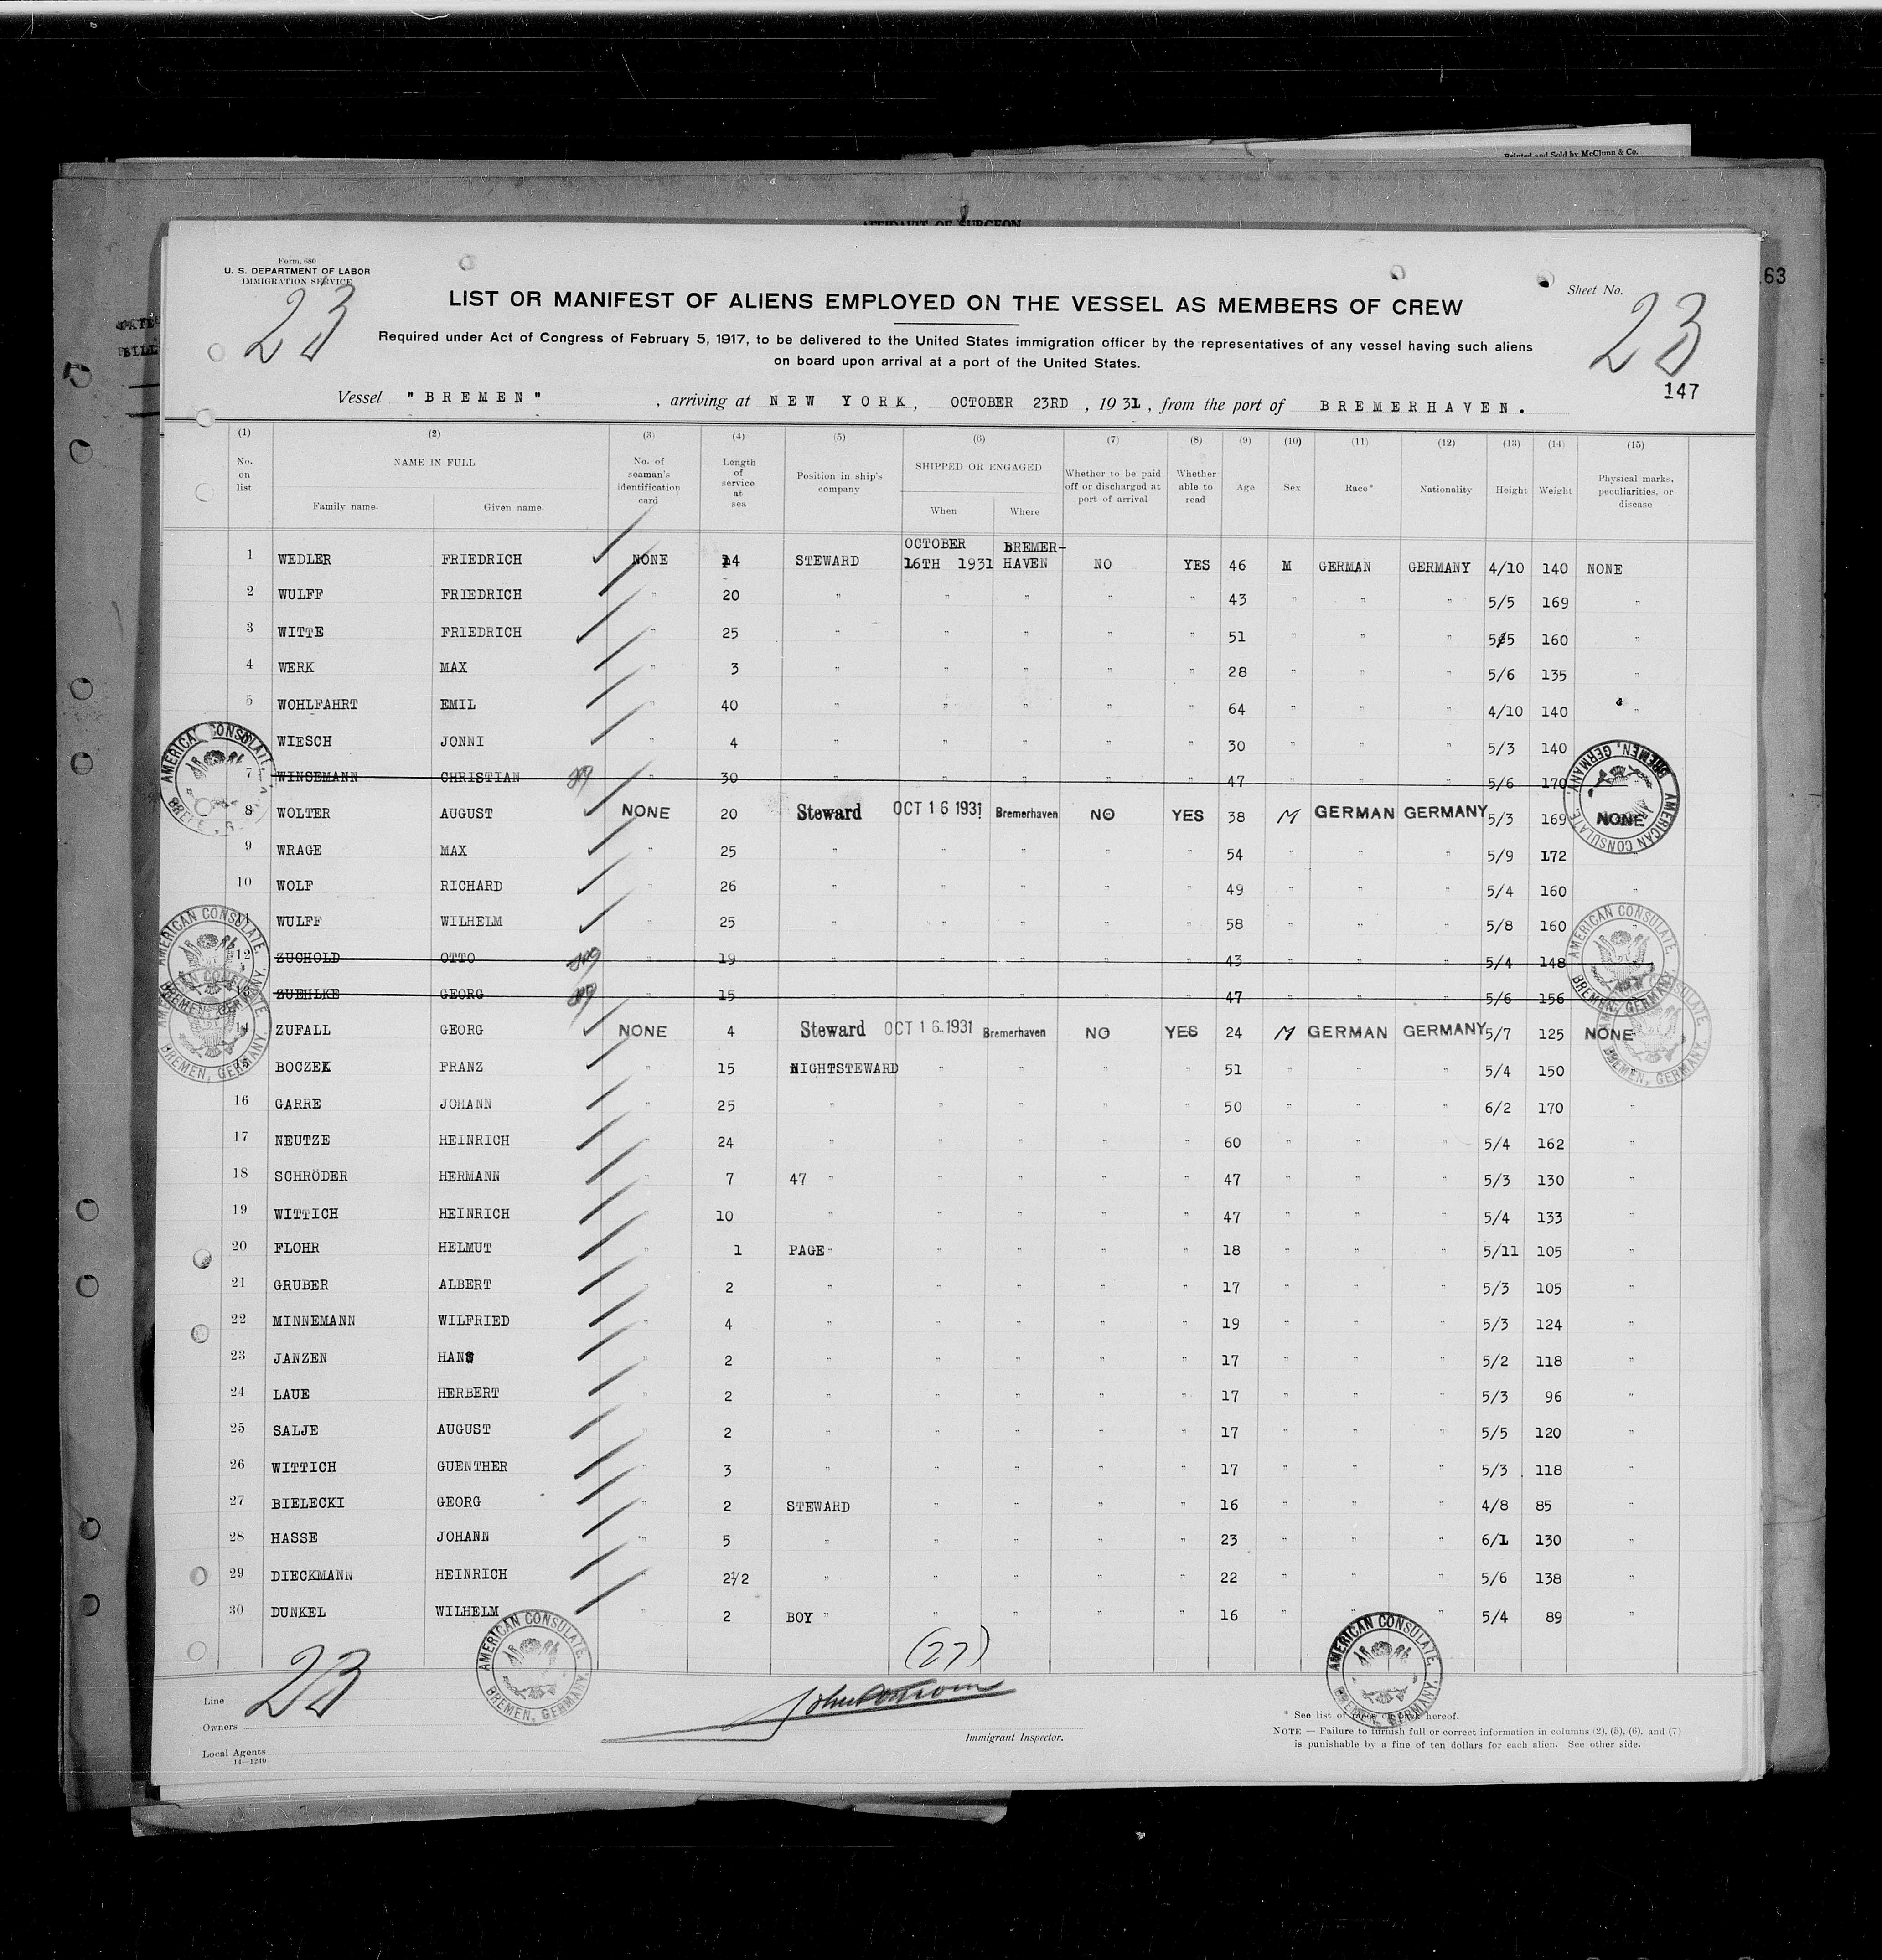 Printed and Sold by McClunn & Co.
AFFIDAVIT OF SURGEON
63
Form 680
U. S. DEPARTMENT OF LABOR
IMMIGRATION SERVICE
23
LIST OR MANIFEST OF ALIENS EMPLOYED ON THE VESSEL AS MEMBERS OF CREW
Sheet No.
23
Required under Act of Congress of February 5, 1917, to be delivered to the United States immigration officer by the representatives of any vessel having such aliens
on board upon arrival at a port of the United States.
147
Vessel "BREMEN" , arriving at NEW YORK, OCTOBER 23RD , 1931, from the port of BREMERHAVEN.
(1) (2) (3) (4) (5) (6) (7) (8) (9) (10) (11) (12) (13) (14) (15)
No. on list NAME IN FULL Family name. Given name. No. of seaman's identification card Length of service at sea Position in ship's company SHIPPED OR ENGAGED When Where Whether to be paid off or discharged at port of arrival Whether able to read Age Sex Race* Nationality Height Weight Physical marks, peculiarities, or disease
1 WEDLER FRIEDRICH NONE 14 STEWARD OCTOBER 16TH 1931 BREMER-HAVEN NO YES 46 M GERMAN GERMANY 4/10 140 NONE
2 WULFF FRIEDRICH " 20 " " " " " 43 " " " 5/5 169 "
3 WITTE FRIEDRICH " 25 " " " " " 51 " " " 5/5 160 "
4 WERK MAX " 3 " " " " " 28 " " " 5/6 135 "
5 WOHLFAHRT EMIL " 40 " " " " " 64 " " " 4/10 140 "
6 WIESCH JONNI " 4 " " " " " 30 " " " 5/3 140
7 WINSEMANN CHRISTIAN " 30 " " " " " 47 " " " 5/6 170
8 WOLTER AUGUST NONE 20 Steward OCT 16 1931 Bremerhaven NO YES 38 M GERMAN GERMANY 5/3 169 NONE
9 WRAGE MAX " 25 " " " " " 54 " " " 5/9 172
10 WOLF RICHARD " 26 " " " " " 49 " " " 5/4 160 "
11 WULFF WILHELM " 25 " " " " " 58 " " " 5/8 160 "
12 ZUCHOLD OTTO " 19 " " " " " 43 " " " 5/4 148
13 ZUEHLKE GEORG " 15 " " " " " 47 " " " 5/6 156
14 ZUFALL GEORG NONE 4 Steward OCT 16 1931 Bremerhaven NO YES 24 M GERMAN GERMANY 5/7 125 NONE
15 BOCZEK FRANZ " 15 NIGHTSTEWARD " " " " 51 " " " 5/4 150 "
16 GARRE JOHANN " 25 " " " " " 50 " " " 6/2 170 "
17 NEUTZE HEINRICH " 24 " " " " " 60 " " " 5/4 162 "
18 SCHRÖDER HERMANN " 7 47 " " " " " 47 " " " 5/3 130 "
19 WITTICH HEINRICH " 10 " " " " " 47 " " " 5/4 133 "
20 FLOHR HELMUT " 1 PAGE " " " " " 18 " " " 5/11 105 "
21 GRUBER ALBERT " 2 " " " " " 17 " " " 5/3 105 "
22 MINNEMANN WILFRIED " 4 " " " " " 19 " " " 5/3 124 "
23 JANZEN HANS " 2 " " " " " 17 " " " 5/2 118 "
24 LAUE HERBERT " 2 " " " " " 17 " " " 5/3 96 "
25 SALJE AUGUST " 2 " " " " " 17 " " " 5/5 120 "
26 WITTICH GUENTHER " 3 " " " " " 17 " " " 5/3 118 "
27 BIELECKI GEORG " 2 STEWARD " " " " 16 " " " 4/8 85 "
28 HASSE JOHANN " 5 " " " " " 23 " " " 6/1 130 "
29 DIECKMANN HEINRICH " 2 1/2 " " " " " 22 " " " 5/6 138 "
30 DUNKEL WILHELM " 2 BOY " " " " " 16 " " " 5/4 89 "
AMERICAN CONSULATE. BREMEN, GERMANY.
AMERICAN CONSULATE. BREMEN, GERMANY.
AMERICAN CONSULATE. BREMEN, GERMANY.
AMERICAN CONSULATE. BREMEN, GERMANY.
AMERICAN CONSULATE. BREMEN, GERMANY.
(27)
23
Line
Owners
Local Agents
14—1240
Immigrant Inspector.
* See list of races on back hereof.
NOTE — Failure to furnish full or correct information in columns (2), (5), (6), and (7)
is punishable by a fine of ten dollars for each alien. See other side.